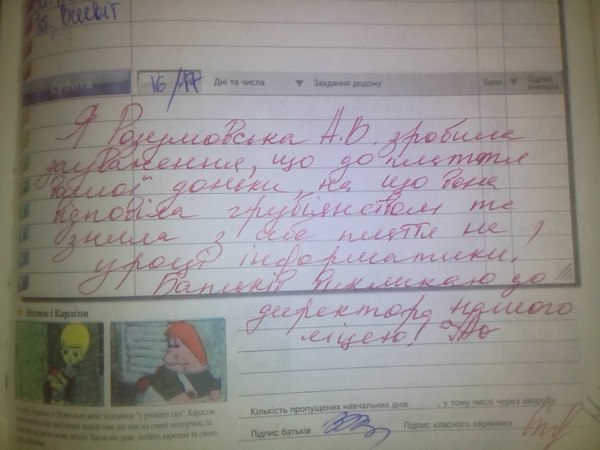 Вшвіт
Субота 16/17 Дні та числа ▼ Завдання додому Бали ▼ Підпис вчителя
Я Розумовська А.В. зробила
зауваження, що до плаття
вашої доньки, на що вона
відповіла грубіянством та
зняла з себе плаття на
уроці інформатики.
Батьків викликаю до
директора нашого
ліцею!
Малюк і Карлсон
Кількість пропущених навчальних днів , у тому числі через хворобу
Підпис батьків Підпис класного керівника